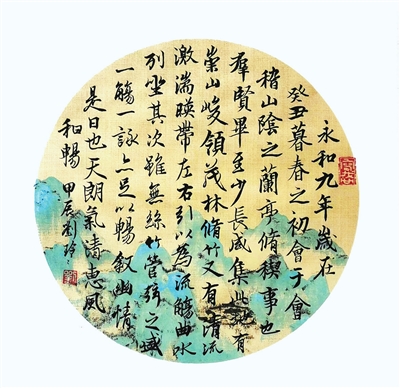 永和九年歲在
癸丑暮春之初會于會
稽山陰之蘭亭脩稧事也
羣賢畢至少長咸集此地有
崇山峻領茂林脩竹又有清流
激湍暎帶左右引以為流觴曲水
列坐其次雖無絲竹管弦之盛
一觴一詠亦足以暢敘幽情
是日也天朗氣清惠風
和暢
甲辰劉